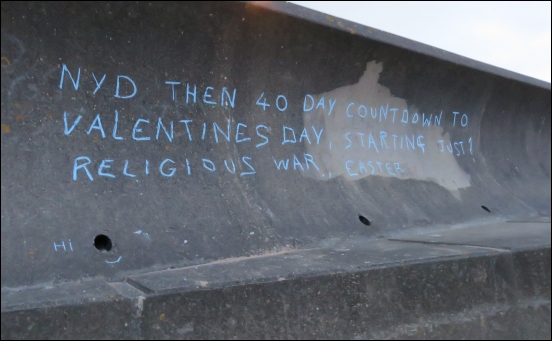 NYD THEN 40 DAY COUNTDOWN TO
VALENTINES DAY, STARTING JUST?
RELIGIOUS WAR, EASTER
Hi